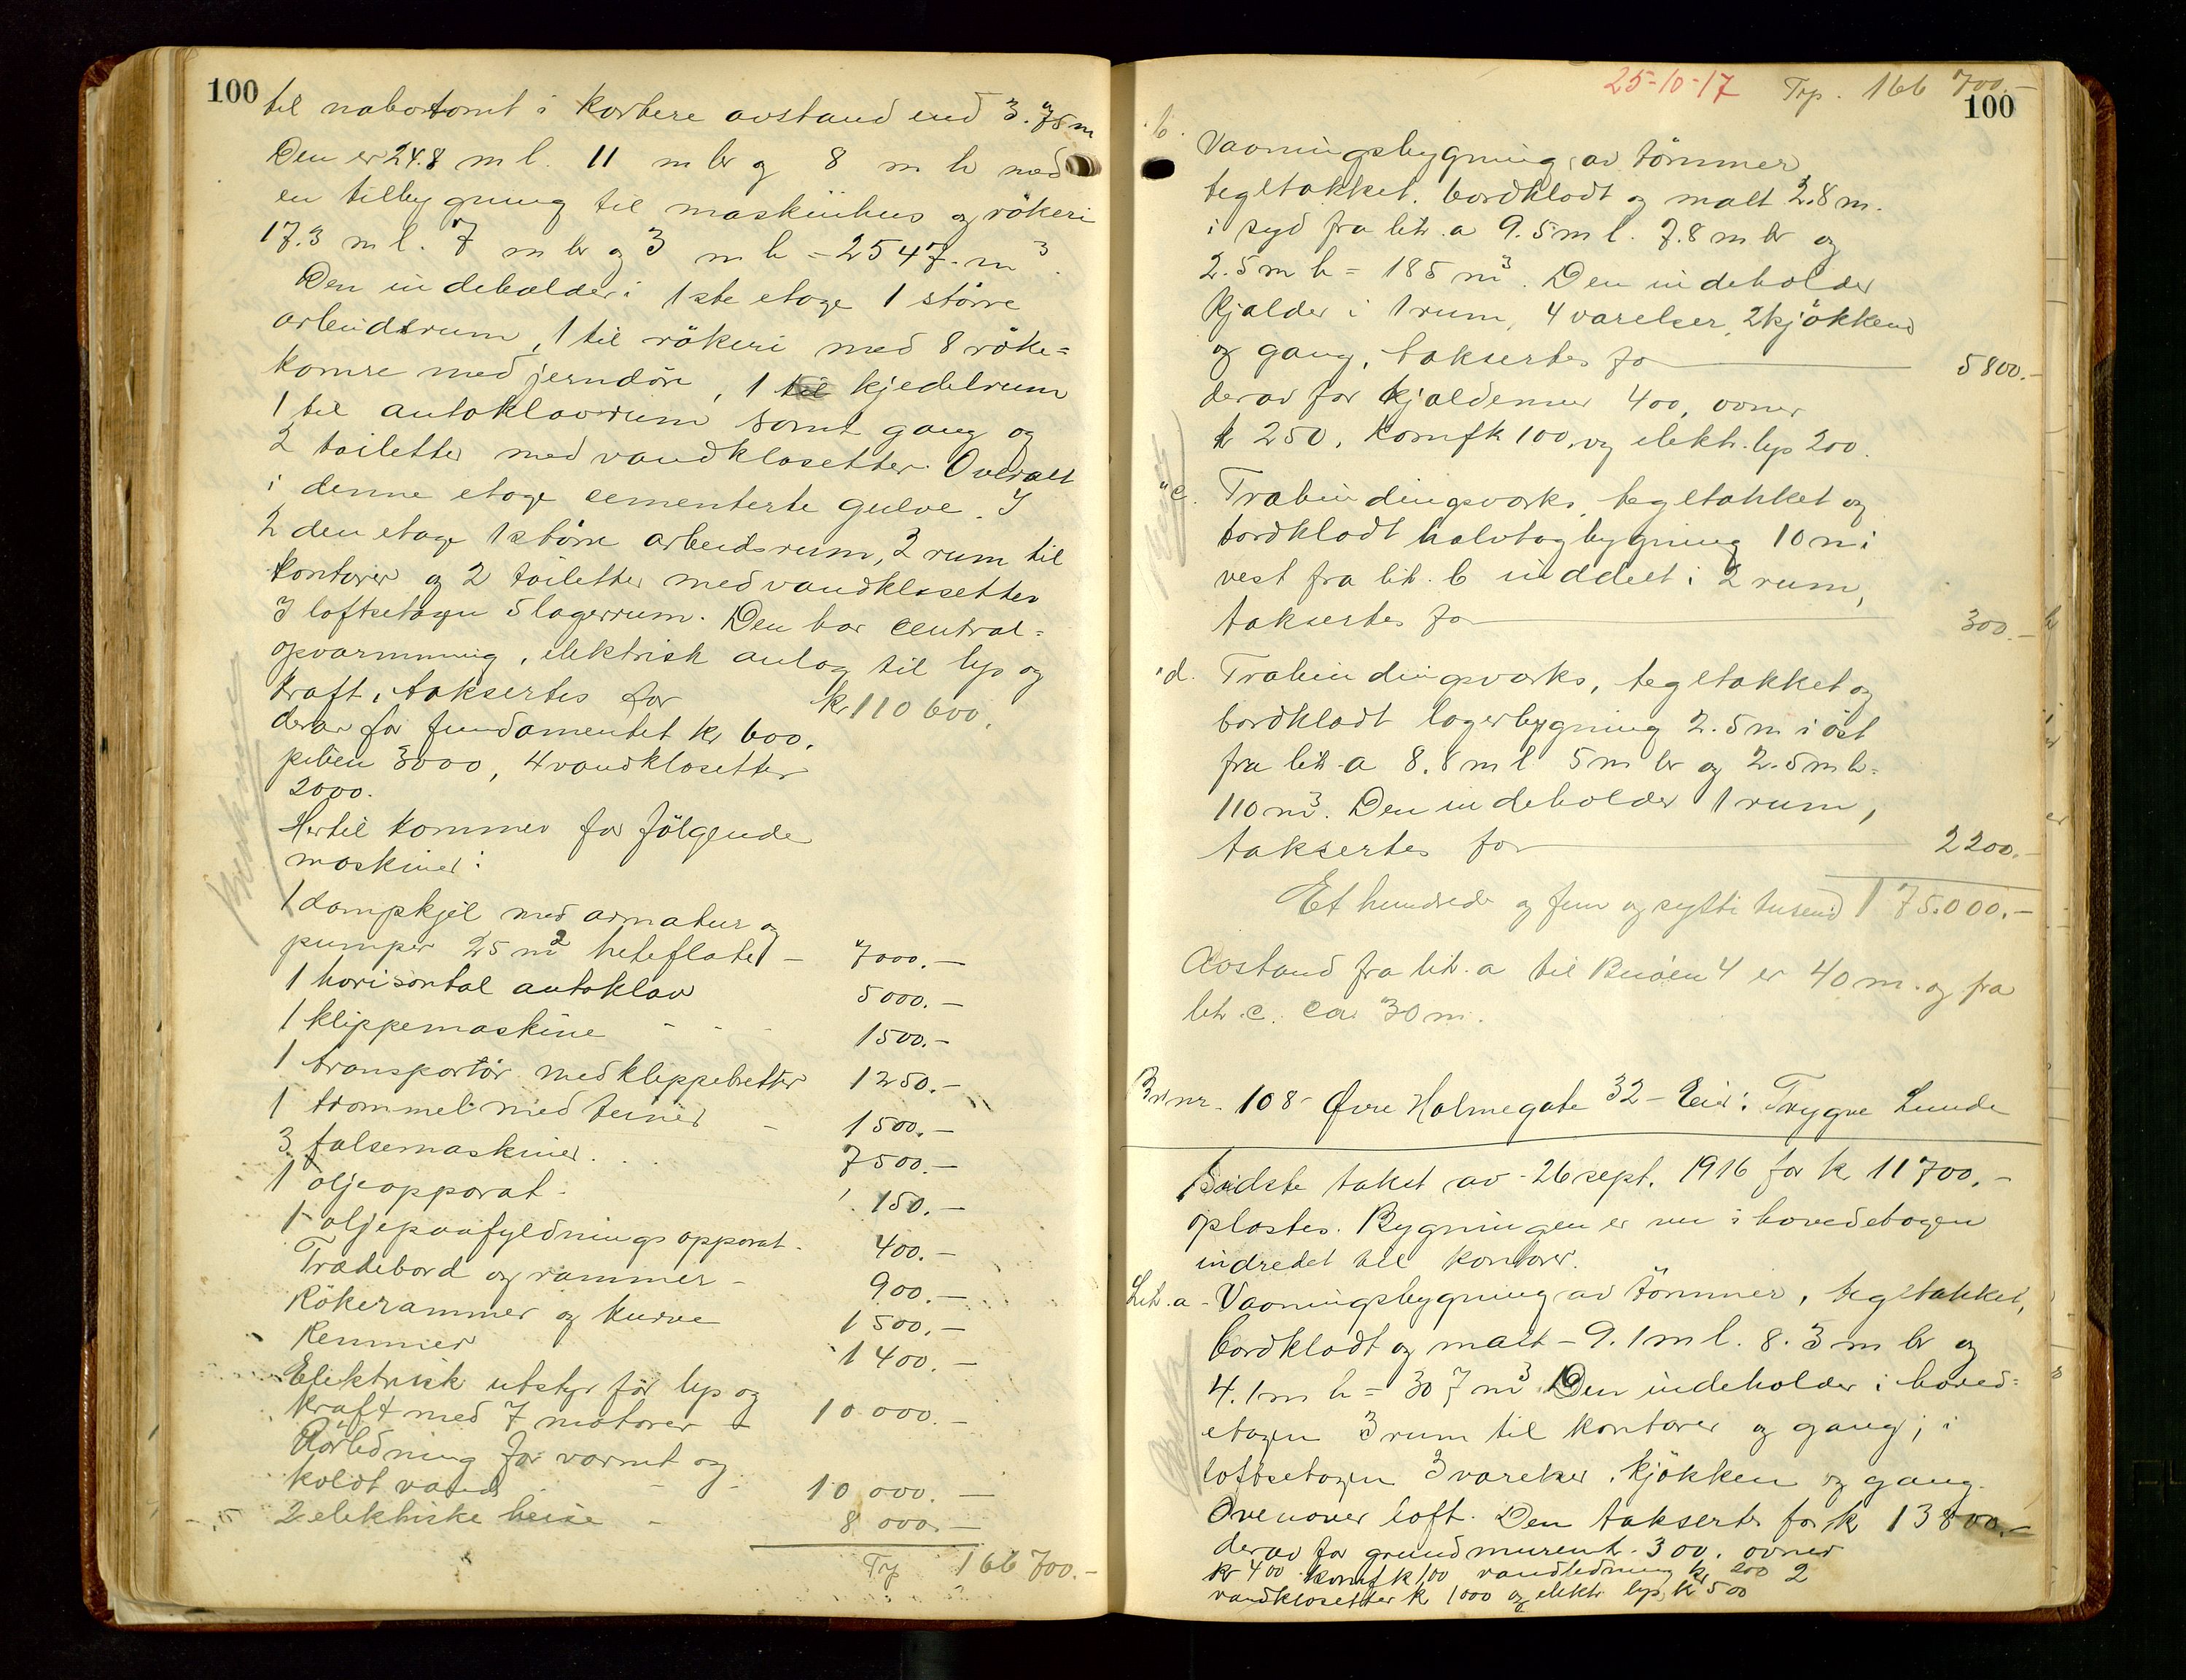 100
til nabotomt i kortere avstand end 3.75 m
Den er 24.8 m l. 11 m br og 8 m h med
en tilbygning til maskinhus og rökeri
17.3 m l. 7 m br og 3 m h = 2547 m3.
Den indeholder i 1ste etage 1 större
arbeidsrum, 1 til rökeri med 8 röke=
komre med jerndöre, 1 til kjedelrum
1 til autoklavrum samt gang og
2 toiletter med vandklosetter. Overalt
i denne etage cementerte gulve. I
2 den etage 1 större arbeidsrum, 2 rum til
kontorer og 2 toiletter med vandklosetter
I loftsetagen 5 lagerrum. Den har central=
opvarmning, elektrisk anlæg til lys og
kraft, taksertes for kr 110 600.
derav for fundamentet kr 600.
piben 3000, 4 vandklosetter
2000.
Hertil kommer for følgende
maskiner:
1 dampkjel med armatur og
pumper 25 m2 heteflate - 7000.-
1 horisontal autoklav 5000.-
1 klippemaskine - - - 1500.-
1 transportör med klippebretter 1250.-
1 trommel med teiner - 1500.-
3 falsemaskiner. . . 7500.-
1 oljeapparat - 150.-
1 oljepaafyldningsapparat - 400.-
Trædebord og rammer - 900.-
Rökerammer og kurve 1500.-
Remmer 1400.-
Elektrisk utstyr för lys og
kraft med 7 motorer - 10 000.-
Rörledning for varmt og
koldt vand - - 10 000.-
2 elektriske heise - 8 000.-
Trp 166 700.-
25-10-17 Trp. 166 700.-
100
b. Vaaningsbygning av tömmer
tegltækket, bordklædt og malt 2.8 m.
i syd fra litr. a 9.5 m l. 7.8 m br og
2.5 m h = 185 m3. Den indeholder
kjælder i 1 rum, 4 værelser, 2 kjökkener
og gang, taksertes for 5800.-
derav for kjælderen 400, ovner
kr 250, komf k 100, og elektr. lys 200.
" c. Træbindingsverks, tegltækket og
bordklædt halvtagbygning 10 m i
vest fra litr. b inddelt i 2 rum,
taksertes for 300.-
" d. Træbindingsverks, tegltækket og
bordklædt lagerbygning 2.5 m i öst
fra litr. a 8.8 m l 5 m br og 2.5 m h =
110 m3. Den indeholder 1 rum,
taksertes for 2200.-
Et hundrede og fem og sytti tusend 175.000.-
Avstand fra litr. a til Buöen 4 er 40 m. og fra
litr. c. ca. 30 m.
Brnr. 108 - Øvre Holmegate 32 - Eier: Trygve Lunde
Sidste takst av 26 sept. 1916 for k 11700.-
oplæstes. Bygningen er nu i hovedetagen
indredet til kontorer.
Litr. a - Vaaningsbygning av tömmer, tegltækket,
bordklædt og malt - 9.1 m l. 8.3 m br og
4.1 m h = 307 m3 Den indeholder i hoved=
etagen 3 rum til kontorer og gang, i
loftsetagen 3 værelser, kjökken og gang.
Ovenover loft. Den taksertes for kr 13800.-
derav for grundmuren k. 300. ovner
kr 400 komf k 100 vandledning kr 200 2
vandklosetter k 1000 og elektr. lys k 500